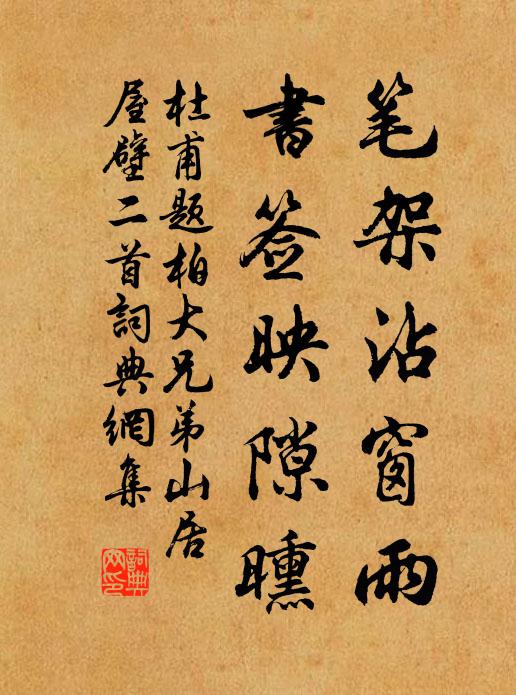 笔架沾窗雨
書签映隙曛
杜甫题柏大兄弟山居
屋壁二首詞典網集
詞典网印